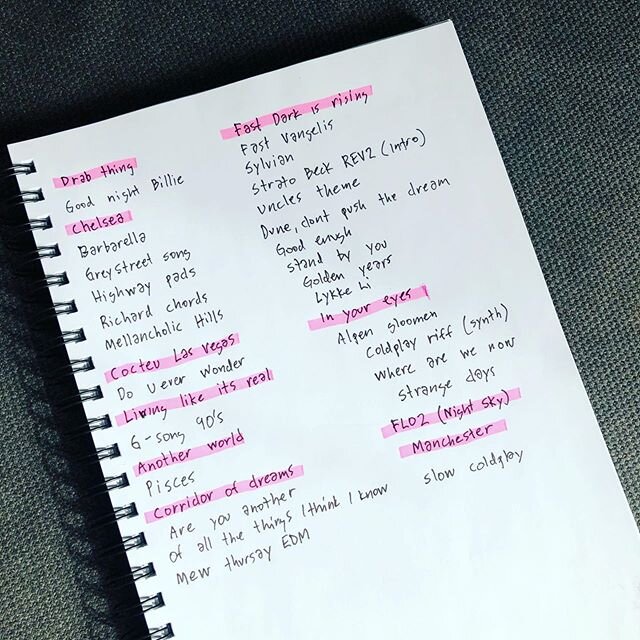 Drab thing
Good night Billie
Chelsea
Barbarella
Greystreet song
Highway pads
Richard chords
Mellancholic Hills
Cocteu Las Vegas
Do u ever wonder
Living like its real
G-song 90's
Another world
Pisces
Corridor of dreams
Are you another
Of all the things I think I know
Mew thursay EDM
Fast Dark is rising
Fast Vangelis
Sylvian
Strato Beck REV2 (intro)
Uncles theme
Dune, dont push the dream
Good enugh
Stand by you
Golden years
Lykke Li
In your eyes
Algen gloomen
Coldplay riff (synth)
Where are we now
Strange days
FLO2 (Night Sky)
Manchester
Slow coldplay